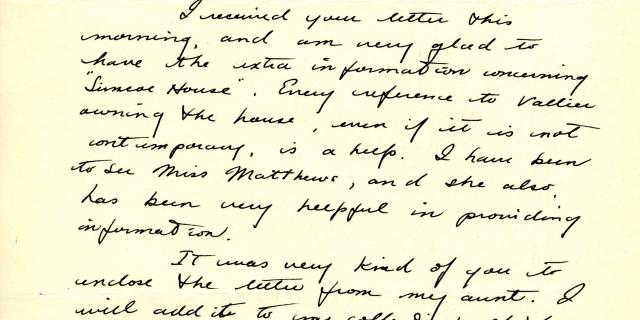 I received your letter this
morning, and am very glad to
have the extra information concerning
"Simcoe House". Every reference to Vallier
owning the house, even if it is not
contemporary, is a help. I have been
to see Miss Matthews, and she also,
has been very helpful in providing
information.
It was very kind of you to
enclose the letter from my aunt. I
will add it to my